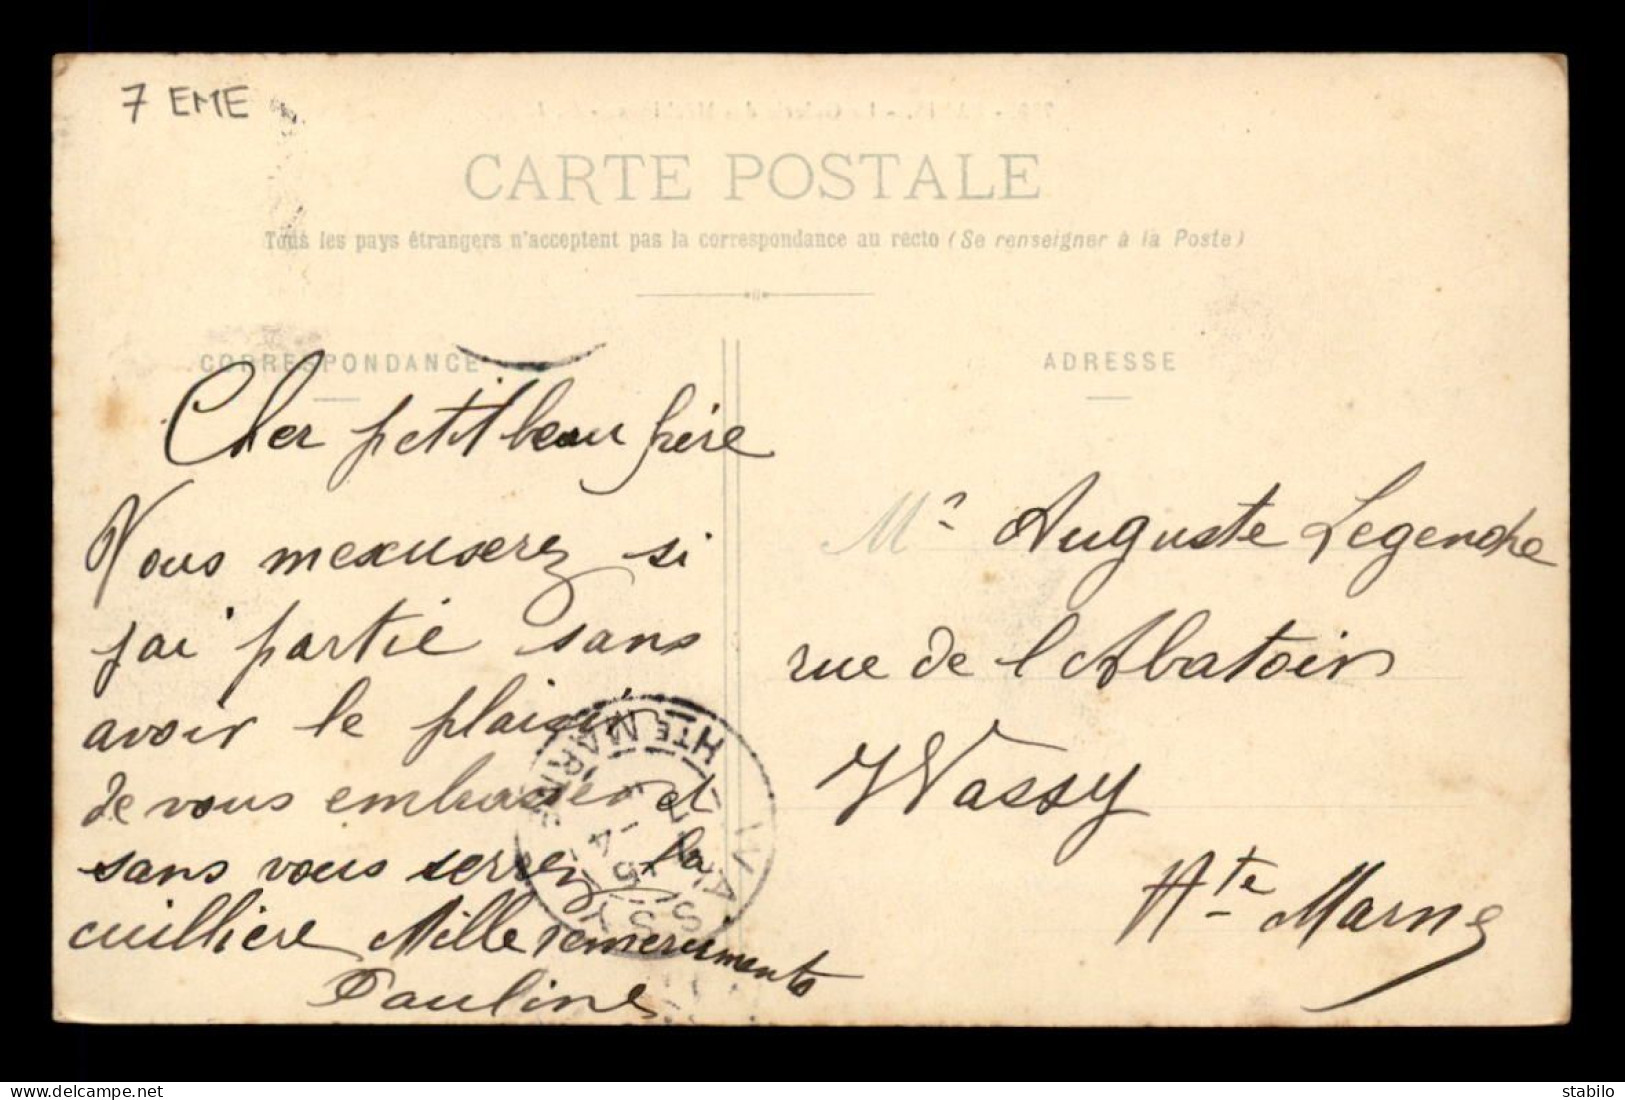 7 EME
CARTE POSTALE
Tous les pays étrangers n'acceptent pas la correspondance au recto (Se renseigner à la Poste)
CORRESPONDANCE
Cher petit beau frère
Vous mexuserez si
jai partie sans
avoir le plaisir
de vous embrasser et
sans vous serrez la
cuillière Mille remerciments
Pauline
ADRESSE
Mr Auguste Legendre
rue de l Abatoir
Wassy
Hte Marne
WASSY
HTE MARNE
delcampe.net
stabilo